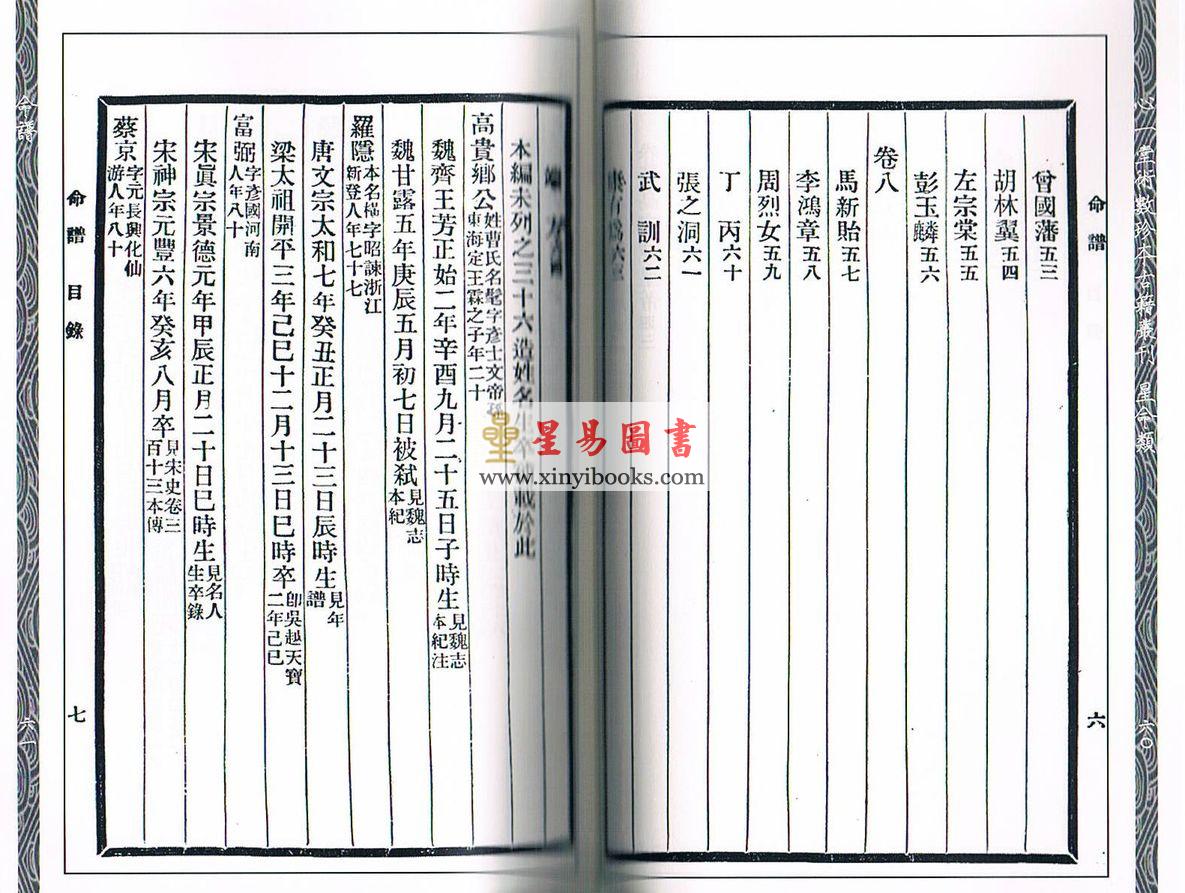 心一堂術數珍本古籍叢刊 星命類
六〇
命譜
六
曾國藩五三
胡林翼五四
左宗棠五五
彭玉麟五六
卷八
馬新貽五七
李鴻章五八
周烈女五九
丁丙六十
張之洞六一
武訓六二
康有為六三
端方六四
本編未列之三十六造姓名生卒附載於此
高貴鄉公姓曹氏名髦字彥士文帝孫
東海定王霖之子年二十
魏齊王芳正始二年辛酉九月二十五日子時生見魏志
本紀注
魏甘露五年庚辰五月初七日被弒見魏志
本紀
羅隱本名橫字昭諫浙江
新登人年七十七
唐文宗太和七年癸丑正月二十三日辰時生見年
譜
梁太祖開平三年己巳十二月十三日巳時卒即吳越天寶
二年己巳
富弼字彥國河南
人年八十
宋眞宗景德元年甲辰正月二十日巳時生見名人
生卒錄
宋神宗元豐六年癸亥八月卒見宋史卷三
百十三本傳
蔡京字元長興化仙
游人年八十
命譜 目錄
七
命譜
六一
星易圖書
www.xinyibooks.com